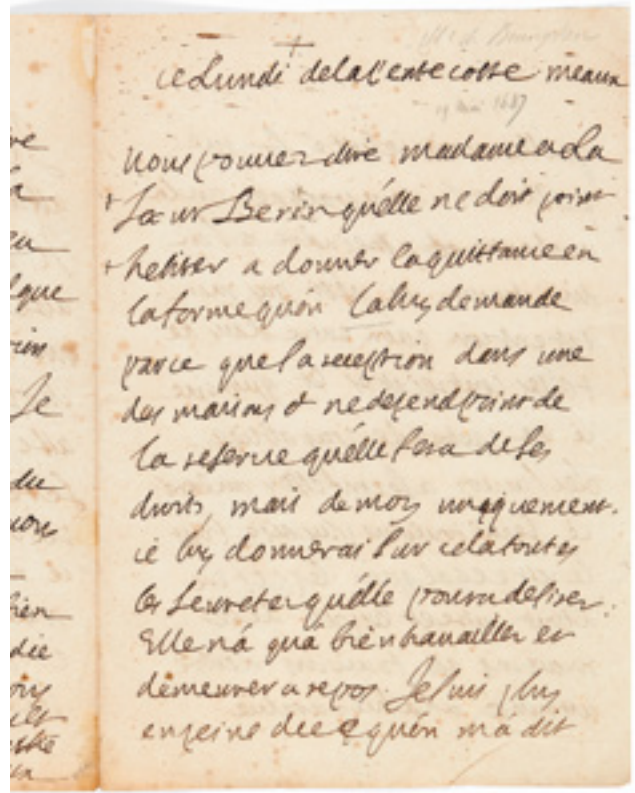 ce Lundi de la Pentecoste meaux
19 mai 1687
vous pouvez dire madame a La
Sœur Berin quélle ne doit point
hesiter a donner la quittance en
la forme quón la luy demande
parce que sa reception dans une
des maisons et ne depend point de
la reserue quélle fera de ses
droits, mais de moy uniquement.
ie luy donnerai sur cela toutes
les seuretez quélle pourra desirer.
Elle ná quá bien trauailler et
demeurer a repos. Je suis plus
en peine de ce quón má dit